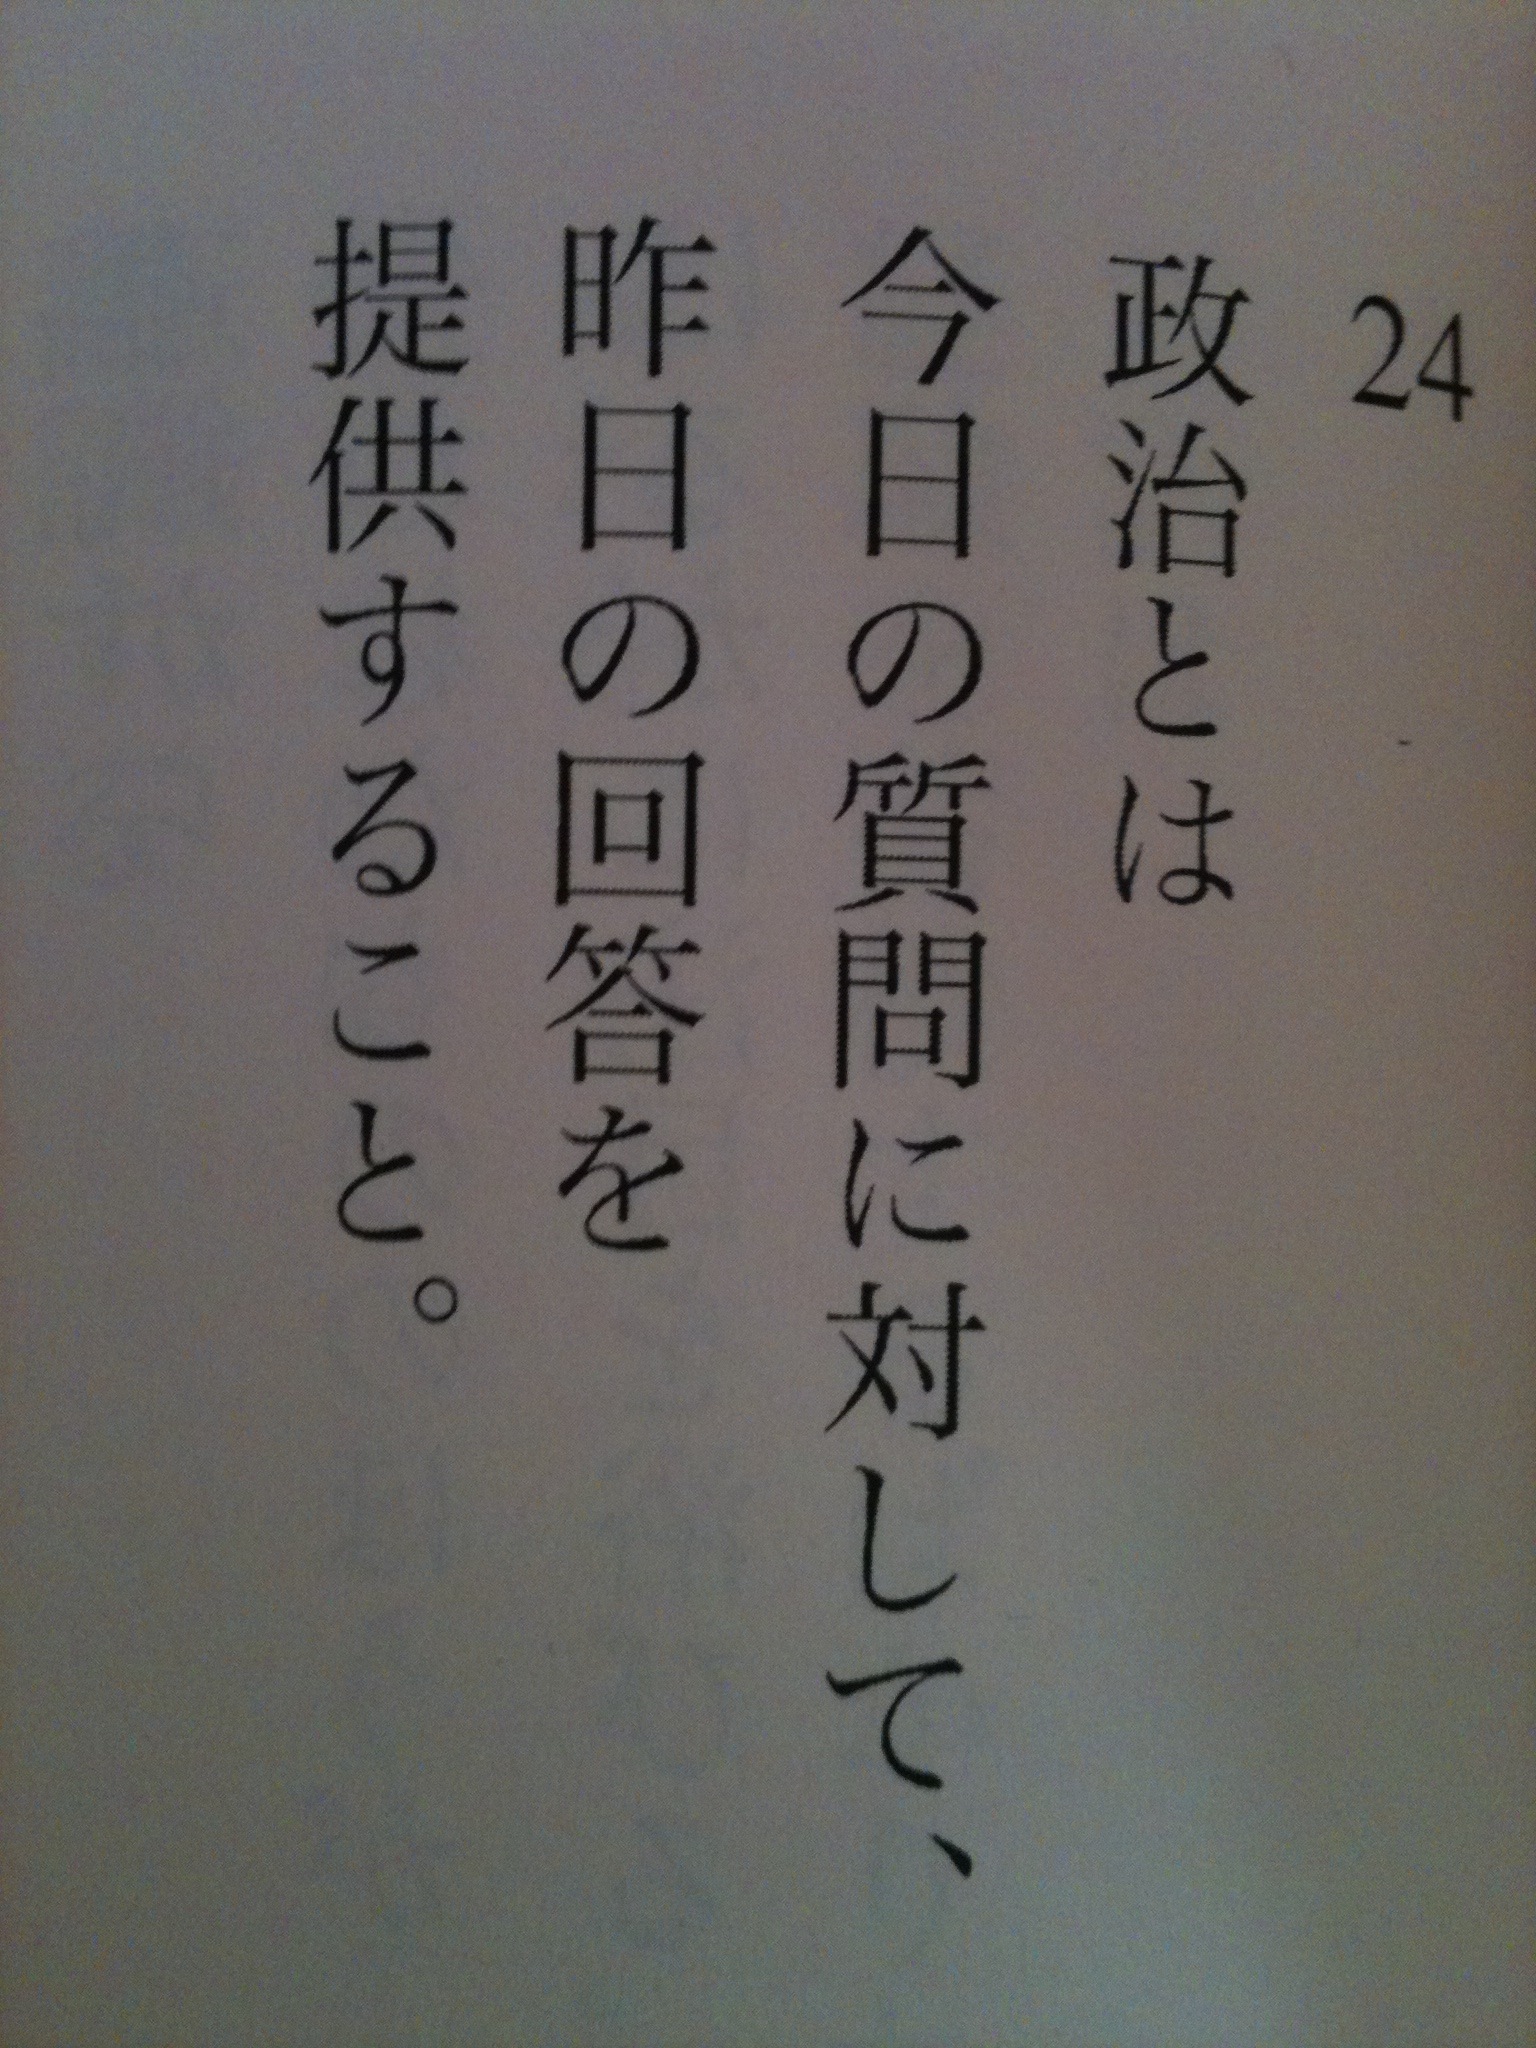 24
政治とは
今日の質問に対して、
昨日の回答を
提供すること。